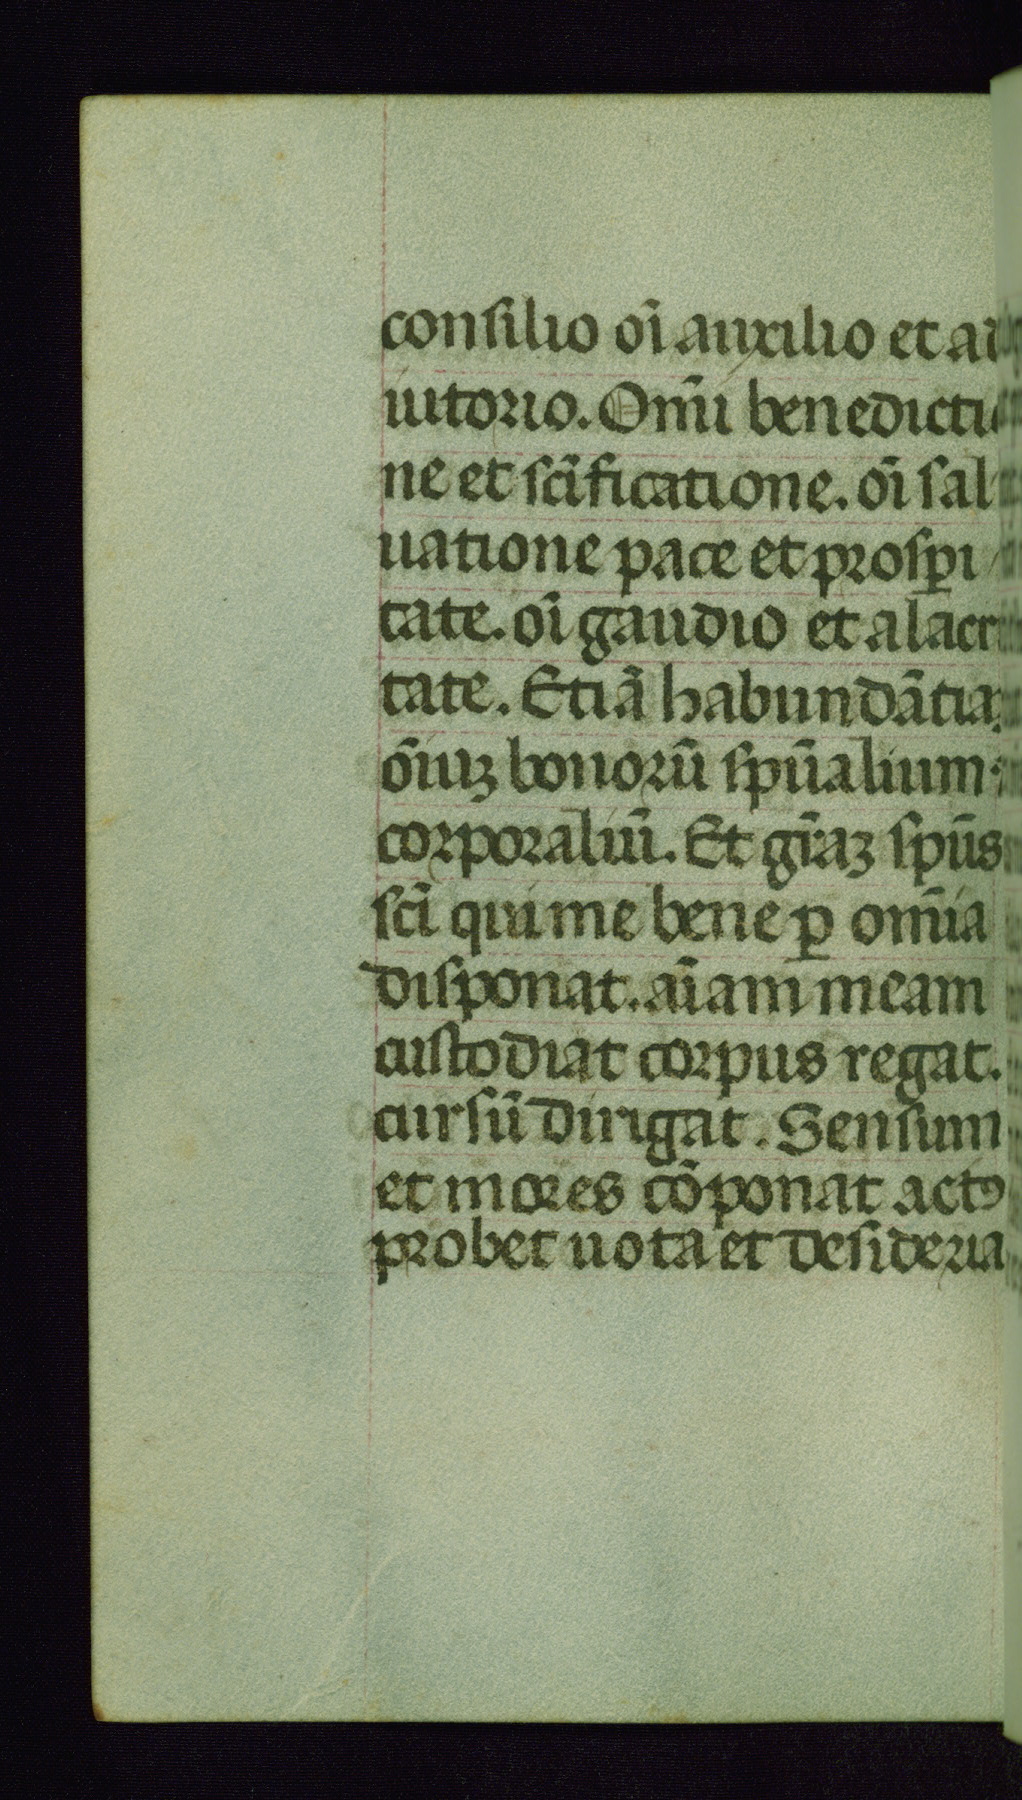 consilio oī auxilio et ad
iutorio. Omī benedicti
ne et scīficatione. oī sal
uatione pace et prosꝑi
tate. oī gaudio et alacri
tate. Etiā habundātia
ōiuꝫ bonorū spūalium
corporaliū. Et grāꝫ spūs
scī qui me bene ꝑ omīa
disponat. aīam meam
custodiat corpus regat.
cursū dirigat. Sensum
et mores cōponat actꝰ
probet uota et desideria